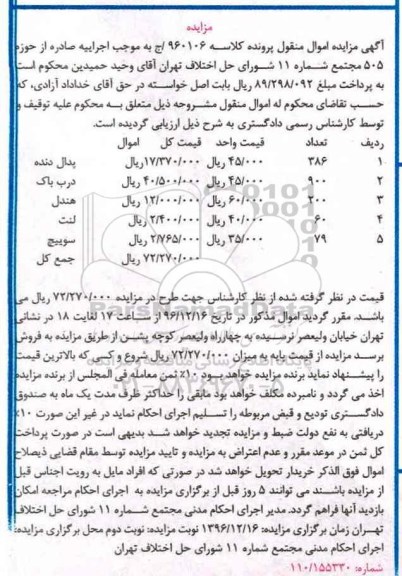 مزایده
آگهی مزایده اموال منقول پرونده کلاسه ۹۶۰۱۰۶ /ج به موجب اجراییه صادره از حوزه
۵۰۵ مجتمع شماره ۱۱ شورای حل اختلاف تهران آقای وحید حمیدین محکوم است
به پرداخت مبلغ ۸۹/۲۹۸/۰۹۲ ریال بابت اصل خواسته در حق آقای خداداد آزادی، که
حسب تقاضای محکوم له اموال منقول مشروحه ذیل متعلق به محکوم علیه توقیف و
توسط کارشناس رسمی دادگستری به شرح ذیل ارزیابی گردیده است.
ردیف تعداد قیمت واحد قیمت کل اموال
۱ ۳۸۶ ۴۵/۰۰۰ ریال ۱۷/۳۷۰/۰۰۰ ریال پدال دنده
۲ ۹۰۰ ۴۵/۰۰۰ ریال ۴۰/۵۰۰/۰۰۰ ریال درب باک
۳ ۲۰۰ ۶۰/۰۰۰ ریال ۱۲/۰۰۰/۰۰۰ ریال هندل
۴ ۶۰ ۴۰/۰۰۰ ریال ۲/۴۰۰/۰۰۰ ریال لنت
۵ ۷۹ ۳۵/۰۰۰ ریال ۲/۷۶۵/۰۰۰ ریال سوییچ
۷۲/۲۷۰/۰۰۰ ریال جمع کل
قیمت در نظر گرفته شده از نظر کارشناس جهت طرح در مزایده ۷۲/۲۷۰/۰۰۰ ریال می
باشد. مقرر گردید اموال مذکور در تاریخ ۹۶/۱۲/۱۶ از ساعت ۱۷ لغایت ۱۸ در نشانی
تهران خیابان ولیعصر نرسیده به چهارراه ولیعصر کوچه پشن از طریق مزایده به فروش
برسد مزایده از قیمت پایه به میزان ۷۲/۲۷۰/۰۰۰ ریال شروع و کسی که بالاترین قیمت
را پیشنهاد نماید برنده مزایده خواهد بود ۱۰٪ ثمن معامله فی المجلس از برنده مزایده
اخذ می گردد و نامبرده مکلف خواهد بود مابقی را حداکثر ظرف مدت یک ماه به صندوق
دادگستری تودیع و قبض مربوطه را تسلیم اجرای احکام نماید در غیر این صورت ۱۰٪
دریافتی به نفع دولت ضبط و مزایده تجدید خواهد شد بدیهی است در صورت پرداخت
کل ثمن در موعد مقرر و عدم اعتراض به مزایده و تایید مزایده توسط مقام قضایی ذیصلاح
اموال فوق الذکر خریدار تحویل خواهد شد در صورتی که افراد مایل به رویت اجناس قبل
از مزایده باشند می توانند ۵ روز قبل از برگزاری مزایده به اجرای احکام مراجعه امکان
بازدید آنها فراهم گردد. مدیر اجرای احکام مدنی مجتمع شماره ۱۱ شورای حل اختلاف
تهران زمان برگزاری مزایده: ۱۳۹۶/۱۲/۱۶ نوبت مزایده: نوبت دوم محل برگزاری مزایده:
اجرای احکام مدنی مجتمع شماره ۱۱ شورای حل اختلاف تهران
شماره: ۱۱۰/۱۵۵۳۳۰